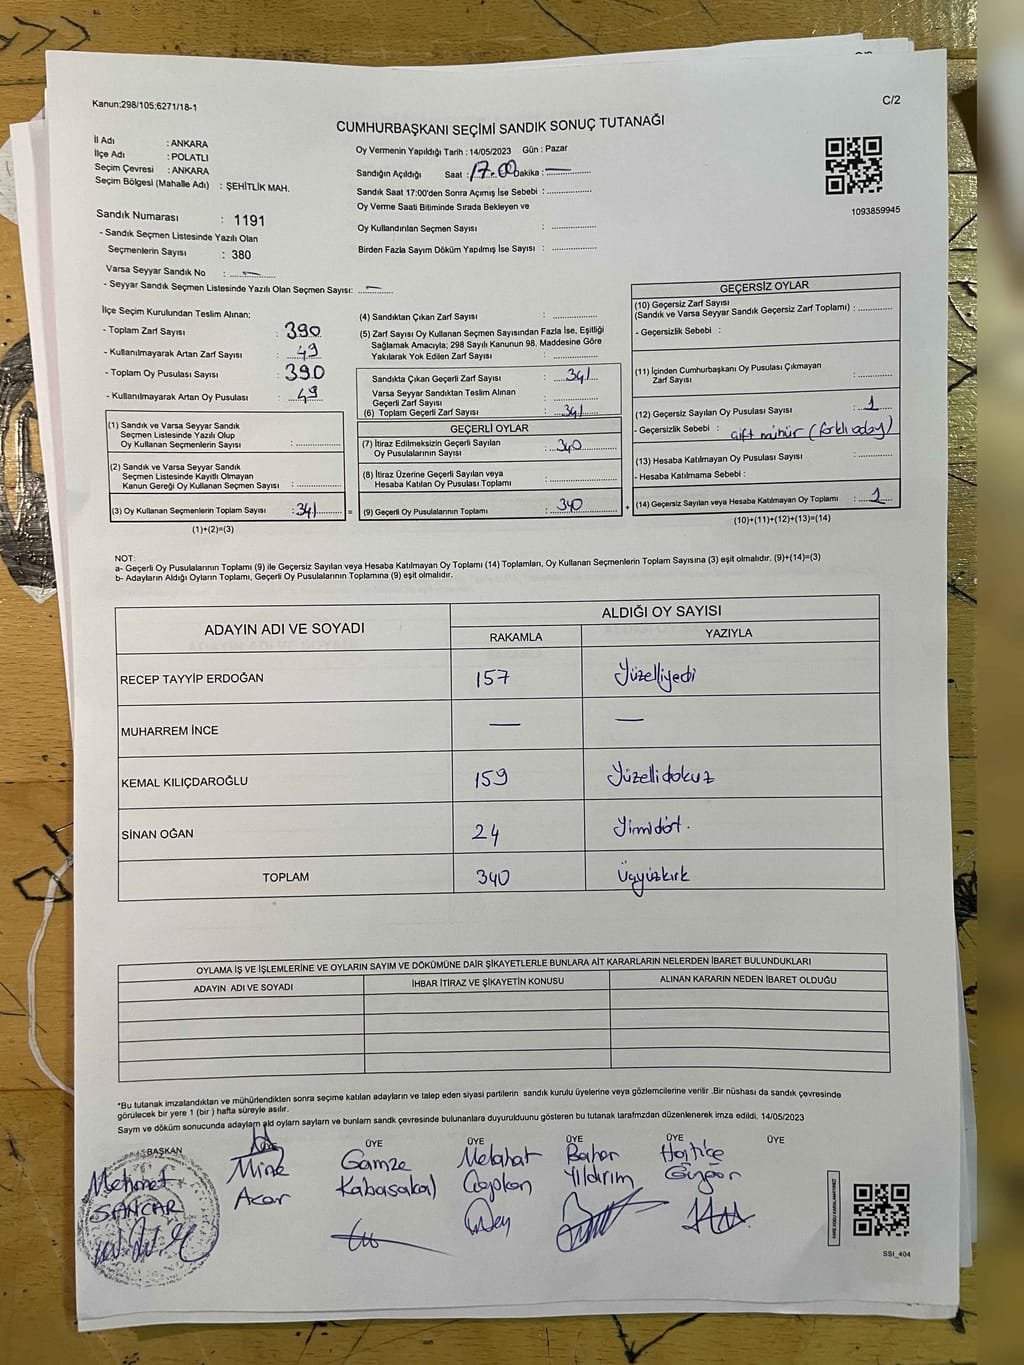 Kanun:298/105;6271/18-1
C/2
CUMHURBAŞKANI SEÇİMİ SANDIK SONUÇ TUTANAĞI
İl Adı : ANKARA
İlçe Adı : POLATLI
Seçim Çevresi : ANKARA
Seçim Bölgesi (Mahalle Adı) : ŞEHİTLİK MAH.
Sandık Numarası : 1191
- Sandık Seçmen Listesinde Yazılı Olan
Seçmenlerin Sayısı : 380
Varsa Seyyar Sandık No : —
- Seyyar Sandık Seçmen Listesinde Yazılı Olan Seçmen Sayısı: —
Oy Vermenin Yapıldığı Tarih : 14/05/2023 Gün : Pazar
Sandığın Açıldığı Saat : 17.00 Dakika : —
Sandık Saat 17:00'den Sonra Açımış İse Sebebi :
Oy Verme Saati Bitiminde Sırada Bekleyen ve
Oy Kullandırılan Seçmen Sayısı :
Birden Fazla Sayım Döküm Yapılmış İse Sayısı :
1093859945
İlçe Seçim Kurulundan Teslim Alınan:
- Toplam Zarf Sayısı : 390
- Kullanılmayarak Artan Zarf Sayısı : 49
- Toplam Oy Pusulası Sayısı : 390
- Kullanılmayarak Artan Oy Pusulası : 49
(1) Sandık ve Varsa Seyyar Sandık
Seçmen Listesinde Yazılı Olup
Oy Kullanan Seçmenlerin Sayısı :
(2) Sandık ve Varsa Seyyar Sandık
Seçmen Listesinde Kayıtlı Olmayan
Kanun Gereği Oy Kullanan Seçmen Sayısı :
(3) Oy Kullanan Seçmenlerin Toplam Sayısı : 341
(1)+(2)=(3)
(4) Sandıktan Çıkan Zarf Sayısı :
(5) Zarf Sayısı Oy Kullanan Seçmen Sayısından Fazla İse, Eşitliği
Sağlamak Amacıyla; 298 Sayılı Kanunun 98. Maddesine Göre
Yakılarak Yok Edilen Zarf Sayısı :
Sandıkta Çıkan Geçerli Zarf Sayısı : 341
Varsa Seyyar Sandıktan Teslim Alınan
Geçerli Zarf Sayısı :
(6) Toplam Geçerli Zarf Sayısı : 341
GEÇERLİ OYLAR
(7) İtiraz Edilmeksizin Geçerli Sayılan
Oy Pusulalarının Sayısı : 340
(8) İtiraz Üzerine Geçerli Sayılan veya
Hesaba Katılan Oy Pusulası Toplamı :
= (9) Geçerli Oy Pusulalarının Toplamı : 340
GEÇERSİZ OYLAR
(10) Geçersiz Zarf Sayısı
(Sandık ve Varsa Seyyar Sandık Geçersiz Zarf Toplamı) :
- Geçersizlik Sebebi :
(11) İçinden Cumhurbaşkanı Oy Pusulası Çıkmayan
Zarf Sayısı :
(12) Geçersiz Sayılan Oy Pusulası Sayısı : 1
- Geçersizlik Sebebi : çift mühür (farklı aday)
(13) Hesaba Katılmayan Oy Pusulası Sayısı :
- Hesaba Katılmama Sebebi :
+ (14) Geçersiz Sayılan veya Hesaba Katılmayan Oy Toplamı : 1
(10)+(11)+(12)+(13)=(14)
NOT:
a- Geçerli Oy Pusulalarının Toplamı (9) ile Geçersiz Sayılan veya Hesaba Katılmayan Oy Toplamı (14) Toplamları, Oy Kullanan Seçmenlerin Toplam Sayısına (3) eşit olmalıdır. (9)+(14)=(3)
b- Adayların Aldığı Oyların Toplamı, Geçerli Oy Pusulalarının Toplamına (9) eşit olmalıdır.
ADAYIN ADI VE SOYADI
ALDIĞI OY SAYISI
RAKAMLA YAZIYLA
RECEP TAYYİP ERDOĞAN 157 Yüzelliyedi
MUHARREM İNCE — —
KEMAL KILIÇDAROĞLU 159 Yüzellidokuz
SİNAN OĞAN 24 Yirmidört.
TOPLAM 340 Üçyüzkırk
OYLAMA İŞ VE İŞLEMLERİNE VE OYLARIN SAYIM VE DÖKÜMÜNE DAİR ŞİKAYETLERLE BUNLARA AİT KARARLARIN NELERDEN İBARET BULUNDUKLARI
ADAYIN ADI VE SOYADI İHBAR İTİRAZ VE ŞİKAYETİN KONUSU ALINAN KARARIN NEDEN İBARET OLDUĞU
*Bu tutanak imzalandıktan ve mühürlendikten sonra seçime katılan adayların ve talep eden siyasi partilerin sandık kurulu üyelerine veya gözlemcilerine verilir .Bir nüshası da sandık çevresinde
görülecek bir yere 1 (bir ) hafta süreyle asılır.
Sayım ve döküm sonucunda adayların ald oyların sayları ve bunların sandk çevresinde bulunanlara duyurulduunu gösteren bu tutanak tarafmzdan düzenlenerek imza edildi. 14/05/2023
BAŞKAN ÜYE ÜYE ÜYE ÜYE ÜYE ÜYE
Mehmet Mine Gamze Melahat Bahar Hatice
SANCAR Acar Kabasakal Yıldırım Güngör
SSI_404